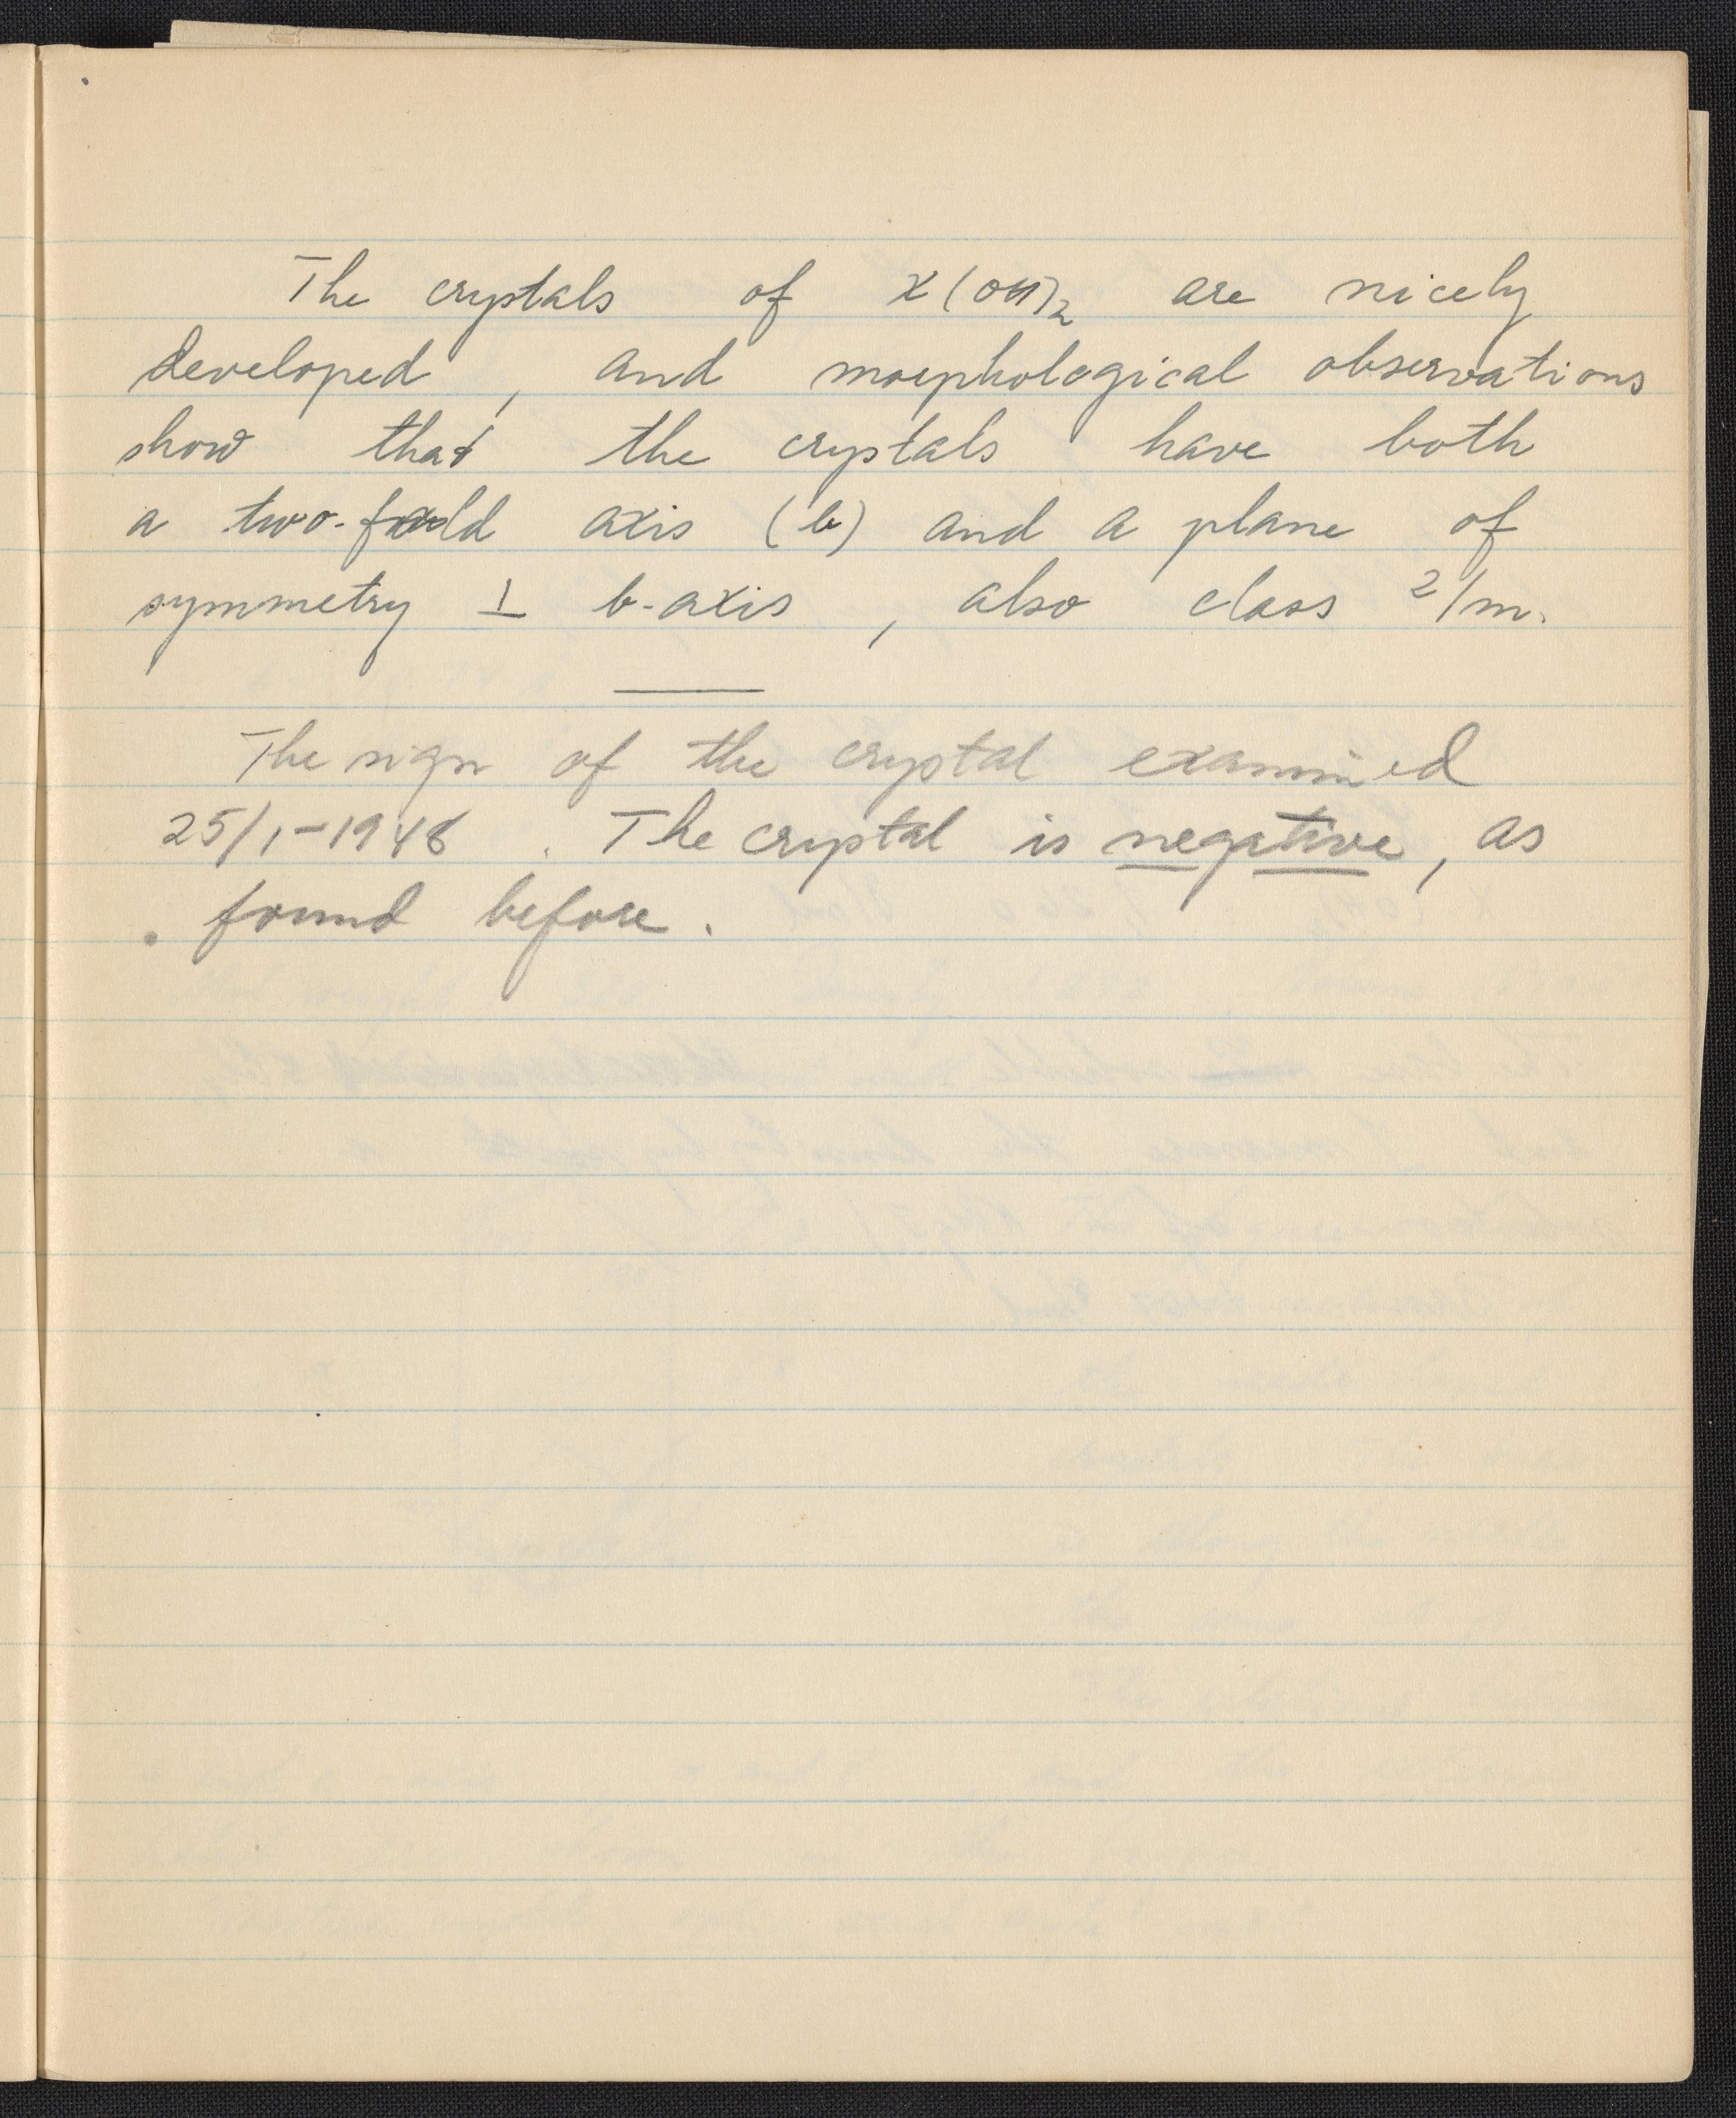 The crystals of X(OH)₂ are nicely
developed, and morphological observations
show that the crystals have both
a two-fold axis (b) and a plane of
symmetry ⊥ b-axis, also class 2/m.
The sign of the crystal examined
25/1-1948. The crystal is negative, as
found before.